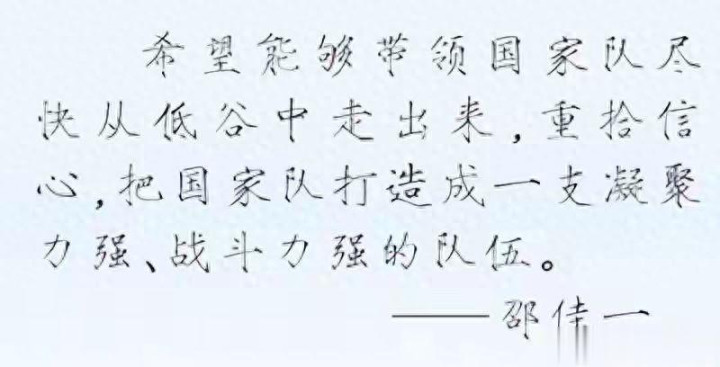 希望能够带领国家队尽
快从低谷中走出来,重拾信
心,把国家队打造成一支凝聚
力强、战斗力强的队伍。
——邵佳一